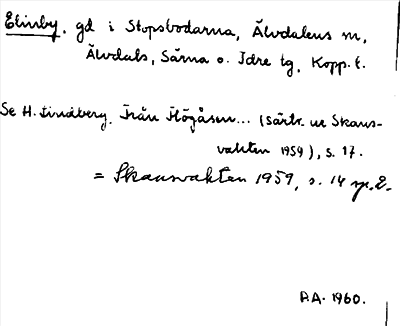 Elinby, gd i Stopsbodarna, Älvdalens sn,
Älvdals, Särna o. Idre tg, Kopp. l.
Se H. Lindberg, Från Högåsen... (Särtr. ur Skans-
vakten 1959), s. 17.
= Skansvakten 1959, s. 14 sp. 2.
P.A. 1960.